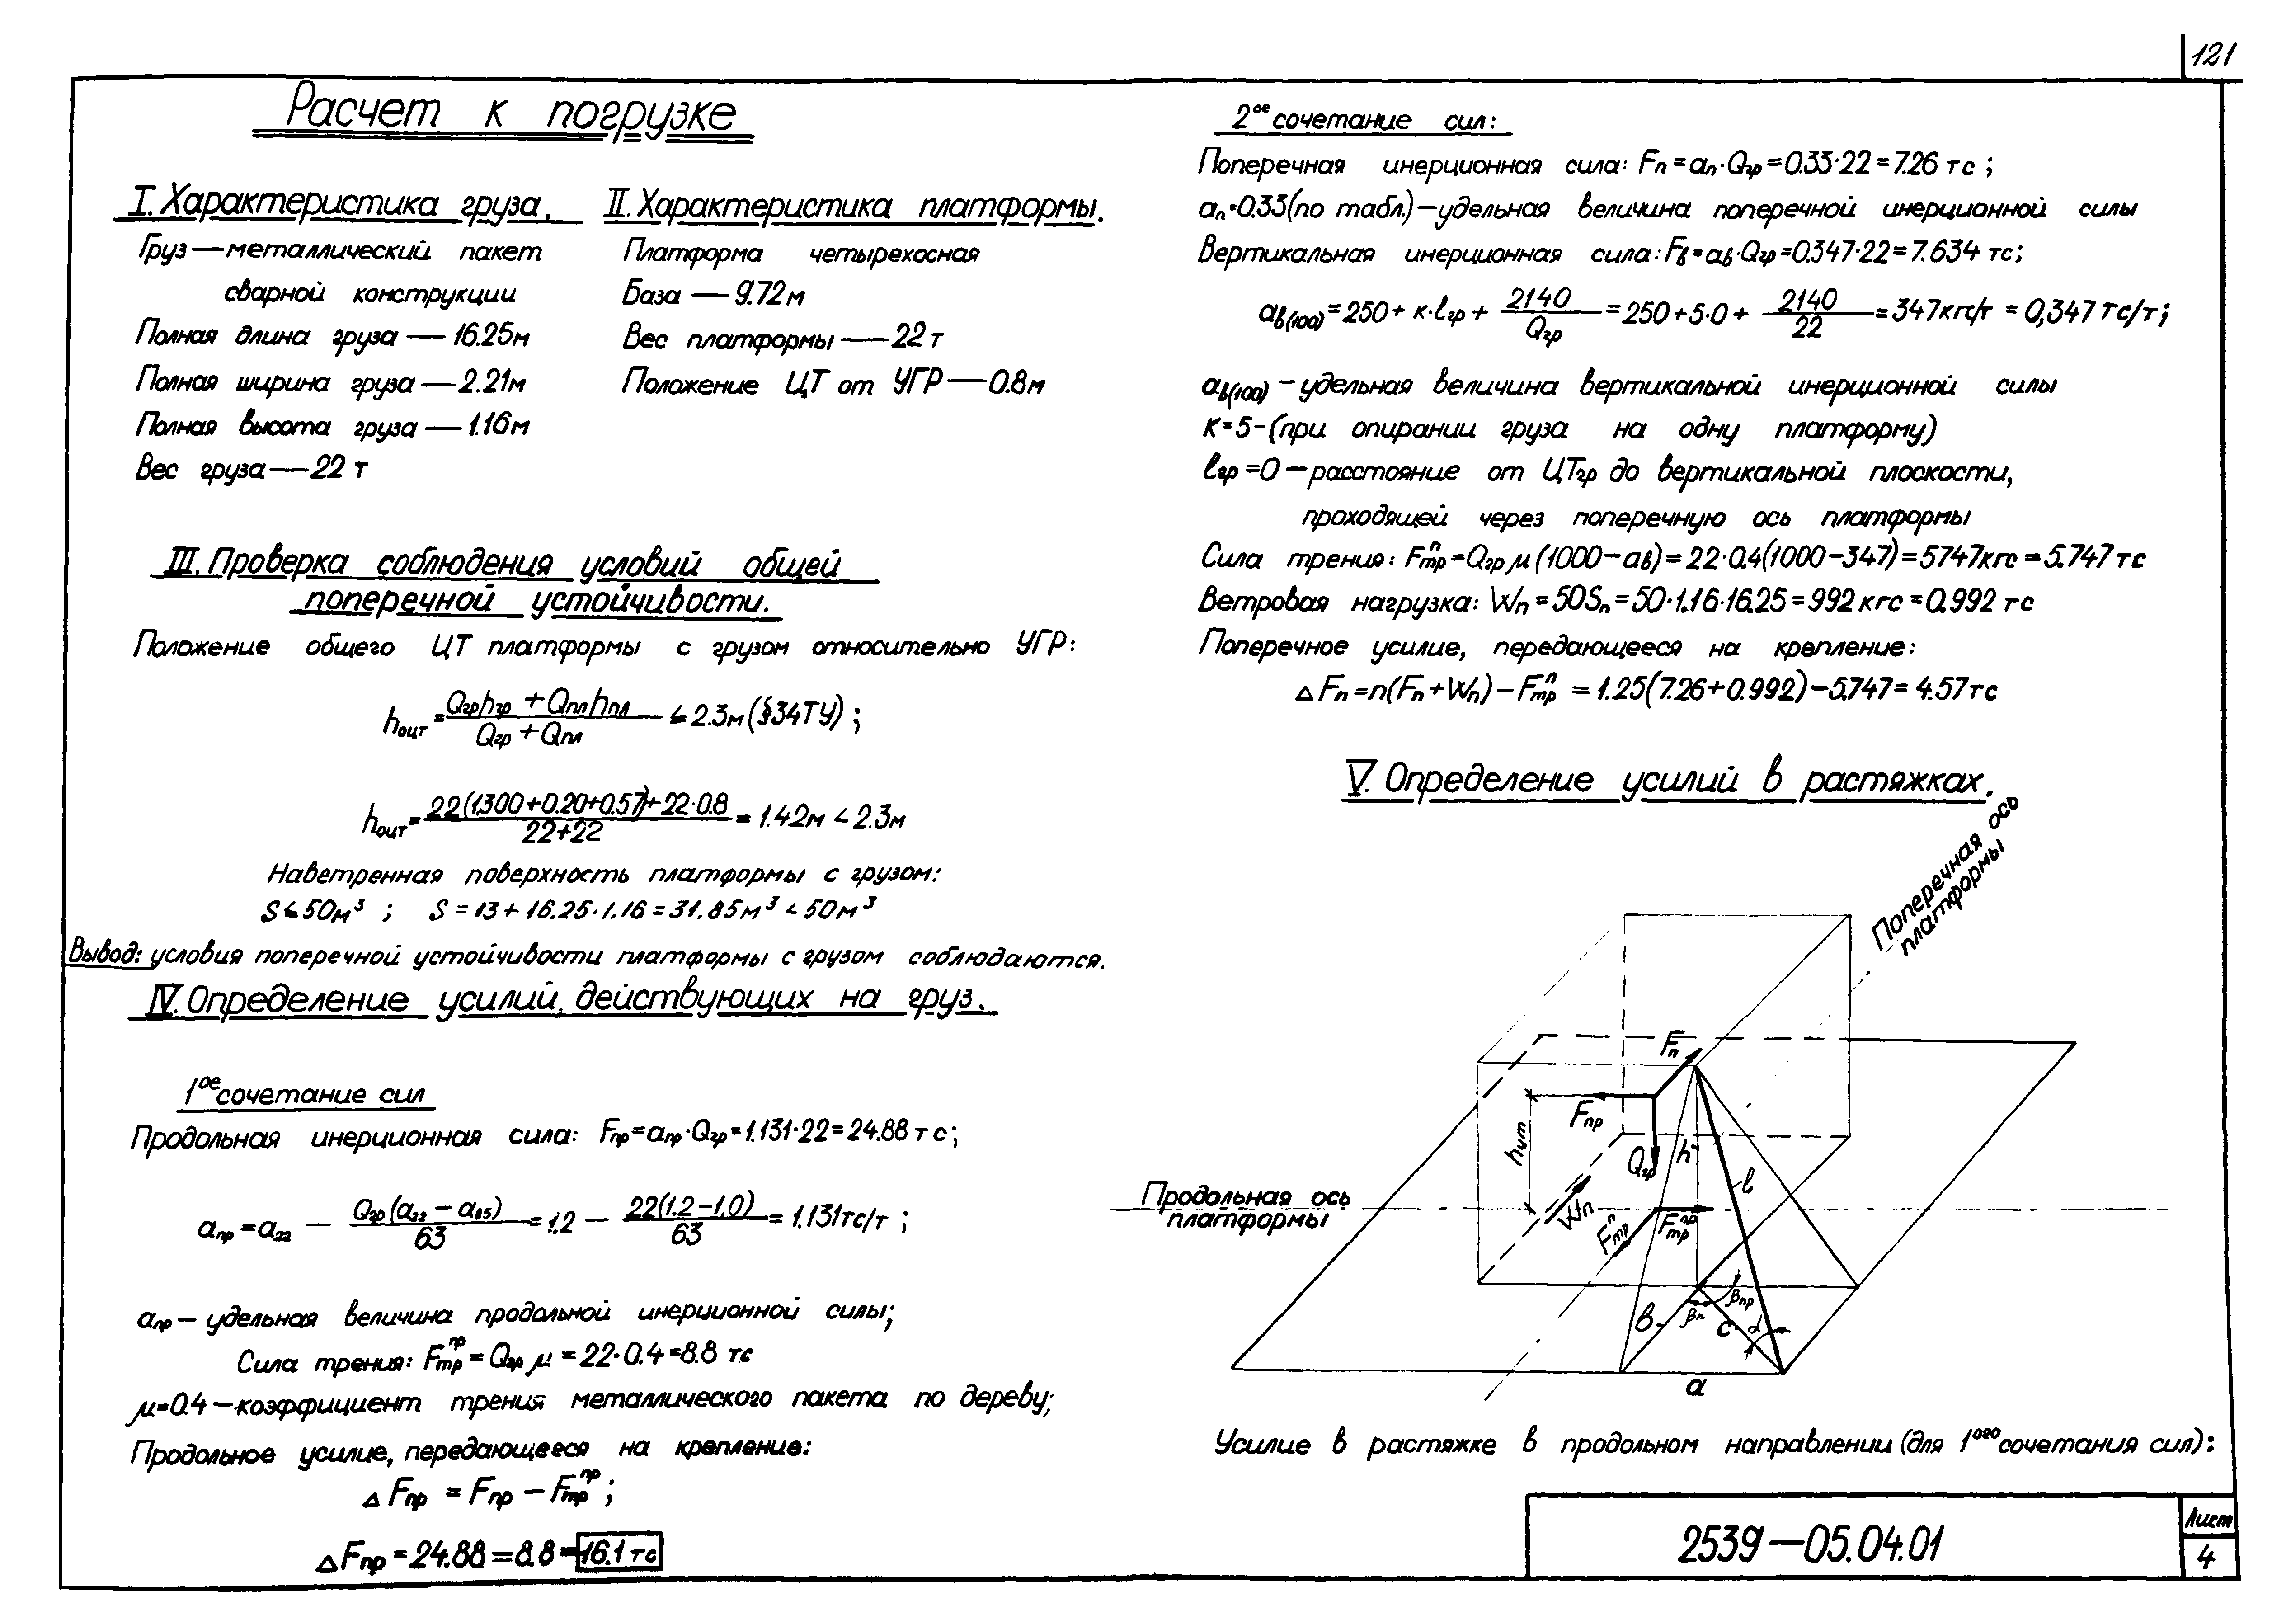 121
Расчет к погрузке
I. Характеристика груза.
Груз — металлический пакет
сварной конструкции
Полная длина груза — 16.25м
Полная ширина груза — 2.21м
Полная высота груза — 1.16м
Вес груза — 22 т
II. Характеристика платформы.
Платформа четырехосная
База — 9.72м
Вес платформы — 22 т
Положение ЦТ от УГР — 0.8м
III. Проверка соблюдения условий общей
поперечной устойчивости.
Положение общего ЦТ платформы с грузом относительно УГР:
hоцт = (Qгр hгр + Qпл hпл) / (Qгр + Qпл) ≤ 2.3м (§34ТУ) ;
hоцт = (22(1.300+0.20+0.57)+22·0.8) / (22+22) = 1.42м < 2.3м
Наветренная поверхность платформы с грузом:
S ≤ 50м³ ; S = 13 + 16.25·1.16 = 31.85м³ < 50м³
Вывод: условия поперечной устойчивости платформы с грузом соблюдаются.
IV. Определение усилий, действующих на груз.
1ое сочетание сил
Продольная инерционная сила: Fпр = aпр·Qгр = 1.131·22 = 24.88 тс;
aпр = a22 — Qгр(a22 — a85) / 63 = 1.2 — 22(1.2-1.0) / 63 = 1.131тс/т ;
aпр — удельная величина продольной инерционной силы;
Сила трения: Fтр^пр = Qгр μ = 22·0.4 = 8.8 тс
μ=0.4 — коэффициент трения металлического пакета по дереву;
Продольное усилие, передающееся на крепление:
Δ Fпр = Fпр — Fтр^пр ;
Δ Fпр = 24.88 = 8.8 = 16.1 тс
2ое сочетание сил:
Поперечная инерционная сила: Fп = aп·Qгр = 0.33·22 = 7.26 тс ;
aп=0.33(по табл.) — удельная величина поперечной инерционной силы
Вертикальная инерционная сила: Fв = aв·Qгр = 0.347·22 = 7.634 тс;
aв(100) = 250 + к·lгр + 2140 / Qгр = 250+5·0 + 2140 / 22 = 347кгс/т = 0,347 тс/т;
aв(100) — удельная величина вертикальной инерционной силы
К = 5 - (при опирании груза на одну платформу)
lгр = 0 — расстояние от ЦТгр до вертикальной плоскости,
проходящей через поперечную ось платформы
Сила трения: Fтр^п = Qгр μ (1000 — aв) = 22·0.4(1000 — 347) = 5747кгс = 5.747 тс
Ветровая нагрузка: Wп = 50Sп = 50·1.16·16.25 = 992 кгс = 0.992 тс
Поперечное усилие, передающееся на крепление:
Δ Fп = n(Fп + Wп) — Fтр^п = 1.25(7.26 + 0.992) — 5.747 = 4.57тс
V. Определение усилий в растяжках.
Поперечная ось
платформы
Fп
Fпр
hцт
Qгр
h
l
Продольная ось
платформы
Wп
Fтр^п
Fтр^пр
βпр
βп
в
с
α
а
Усилие в растяжке в продольном направлении (для 1ого сочетания сил):
2539—05.04.01
Лист
4